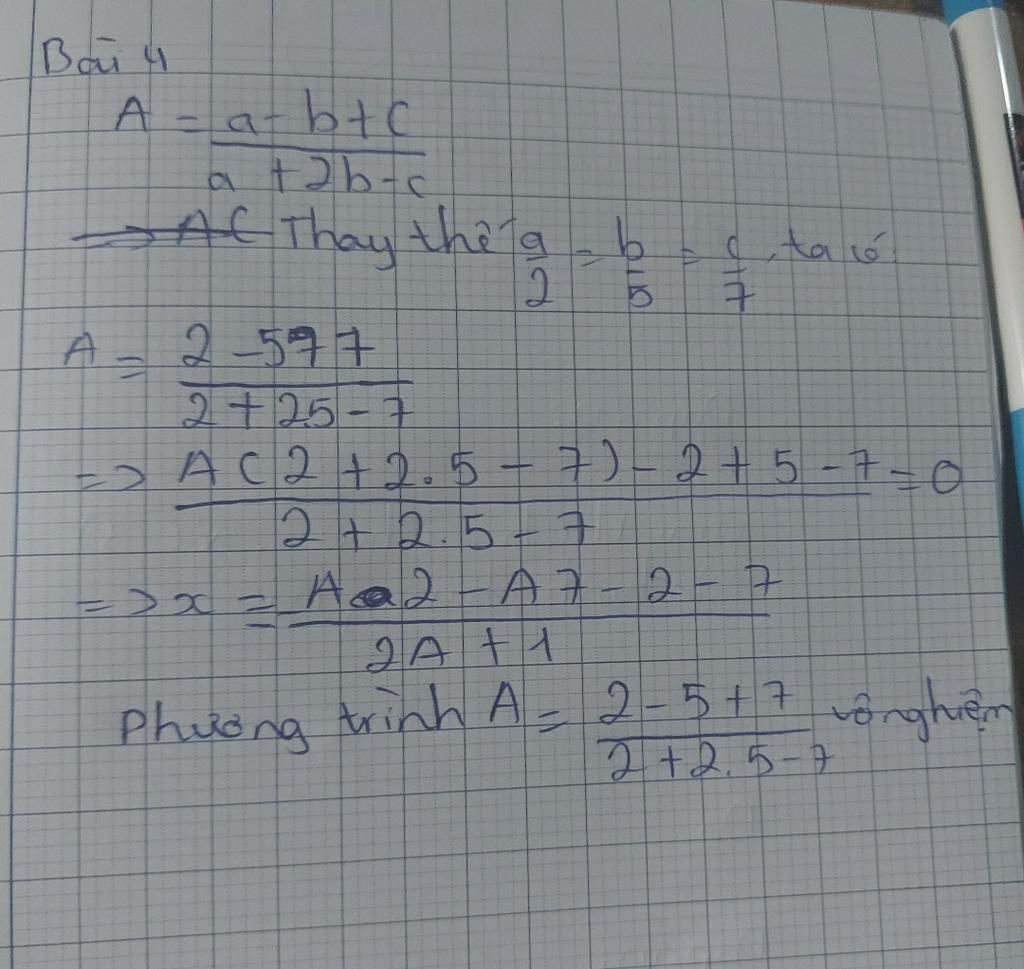 Bài 4
A = a - b + c
a + 2b - c
=> A( Thay thế a/2 = b/5 = c/7, ta có
A = 2 - 5 + 7
2 + 2.5 - 7
=> A(2 + 2.5 - 7) - 2 + 5 - 7 = 0
2 + 2.5 - 7
=> x = A2 - A7 - 2 - 7
2A + 1
Phương trình A = 2 - 5 + 7 vô nghiệm
2 + 2.5 - 7